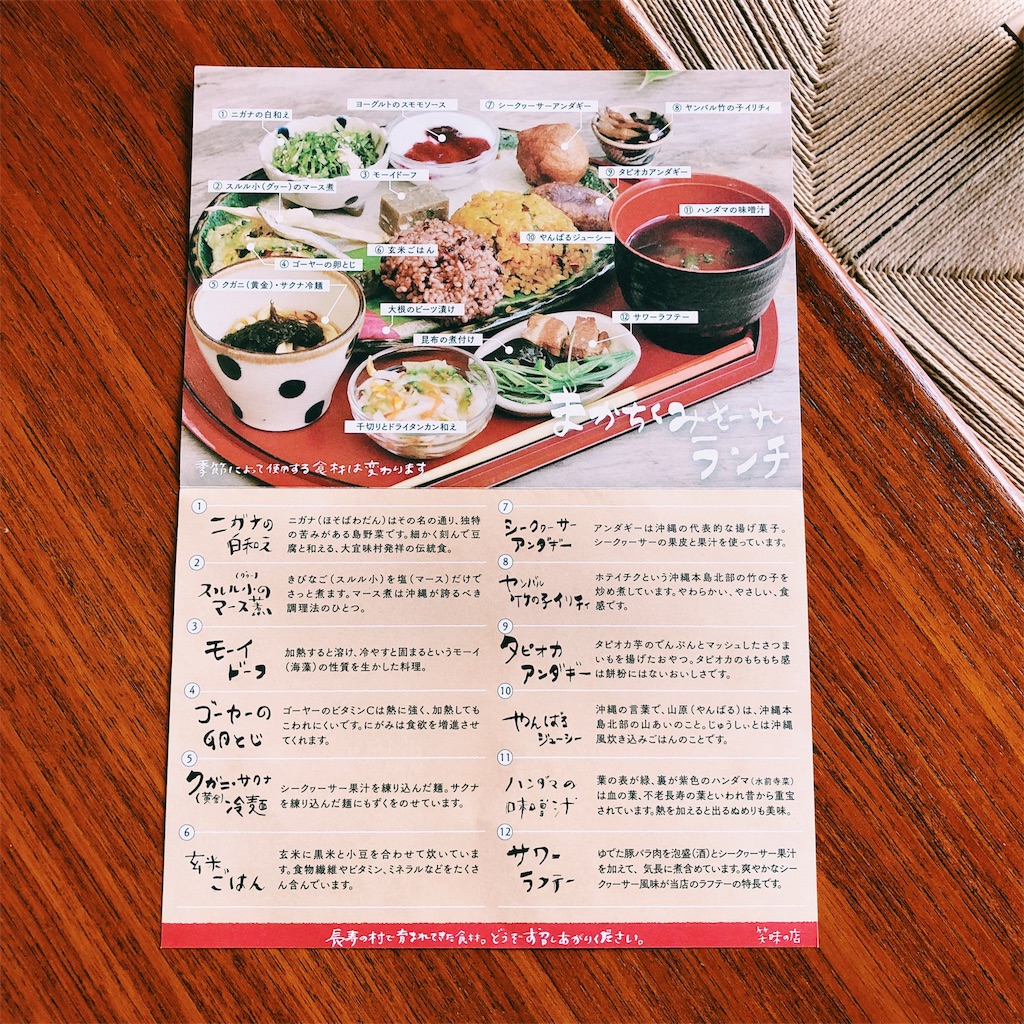 ① ニガナの白和え
ヨーグルトのスモモソース
⑦ シークヮーサーアンダギー
⑧ ヤンバル竹の子イリチィ
② スルル小(グヮー)のマース煮
③ モーイドーフ
⑨ タピオカアンダギー
⑪ ハンダマの味噌汁
④ ゴーヤーの卵とじ
⑥ 玄米ごはん
⑩ やんばるジューシー
⑤ クガニ(黄金)・サクナ冷麺
大根のビーツ漬け
⑫ サワーラフテー
昆布の煮付け
千切りとドライタンカン和え
まかちくみそーれ
ランチ
季節によって使用する食材は変わります
1
ニガナの
白和え
ニガナ(ほそばわだん)はその名の通り、独特
の苦みがある島野菜です。細かく刻んで豆
腐と和える、大宜味村発祥の伝統食。
2
(グヮー)
スルル小の
マース煮
きびなご(スルル小)を塩(マース)だけで
さっと煮ます。マース煮は沖縄が誇るべき
調理法のひとつ。
3
モーイ
ドーフ
加熱すると溶け、冷やすと固まるというモーイ
(海藻)の性質を生かした料理。
4
ゴーヤーの
卵とじ
ゴーヤーのビタミンCは熱に強く、加熱しても
こわれにくいです。にがみは食欲を増進させ
てくれます。
5
クガニ・サクナ
(黄金)冷麺
シークヮーサー果汁を練り込んだ麺。サクナ
を練り込んだ麺にもずくをのせています。
6
玄米
ごはん
玄米に黒米と小豆を合わせて炊いていま
す。食物繊維やビタミン、ミネラルなどをたくさ
ん含んでいます。
7
シークヮーサー
アンダギー
アンダギーは沖縄の代表的な揚げ菓子。
シークヮーサーの果皮と果汁を使っています。
8
ヤンバル
竹の子イリチィ
ホテイチクという沖縄本島北部の竹の子を
炒め煮しています。やわらかい、やさしい、食
感です。
9
タピオカ
アンダギー
タピオカ芋のでんぷんとマッシュしたさつま
いもを揚げたおやつ。タピオカのもちもち感
は餅粉にはないおいしさです。
10
やんばる
ジューシー
沖縄の言葉で、山原(やんばる)は、沖縄本
島北部の山あいのこと。じゅうしいとは沖縄
風炊き込みごはんのことです。
11
ハンダマの
味噌汁
葉の表が緑、裏が紫色のハンダマ(水前寺菜)
は血の葉、不老長寿の葉といわれ昔から重宝
されています。熱を加えると出るぬめりも美味。
12
サワー
ラフテー
ゆでた豚バラ肉を泡盛(酒)とシークヮーサー果汁
を加えて、気長に煮含めています。爽やかなシー
クヮーサー風味が当店のラフテーの特長です。
長寿の村で育まれてきた食材。どうぞ召しあがりください。
笑味の店